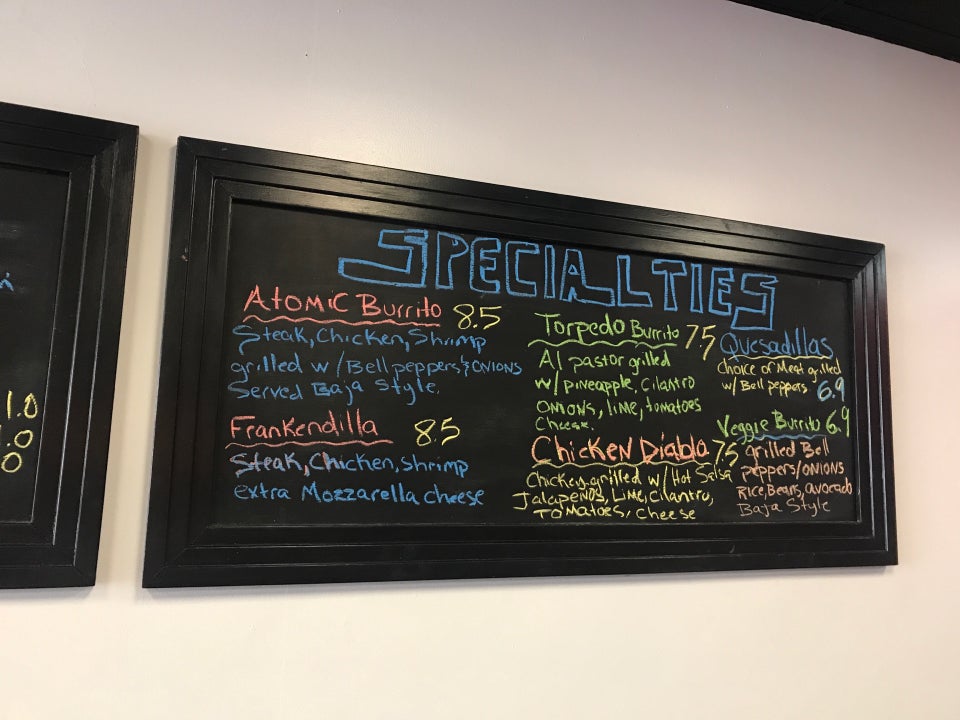 SPECIALTIES
Atomic Burrito 8.5
Steak, Chicken, Shrimp
grilled w/Bell peppers & ONIONS
Served Baja Style.
Frankendilla 8.5
Steak, Chicken, shrimp
extra Mozzarella cheese
Torpedo Burrito 7.5
Al pastor grilled
w/ pineapple, cilantro
ONIONS, lime, tomatoes
Cheese.
Chicken Diablo 7.5
Chicken grilled w/ Hot Salsa
Jalapeños, Lime, Cilantro,
Tomatoes, Cheese
Quesadillas
Choice of Meat grilled
w/ Bell peppers 6.9
Veggie Burrito 6.9
grilled Bell
peppers/ONIONS
Rice, Beans, avocado
Baja Style
1.0
1.0
0